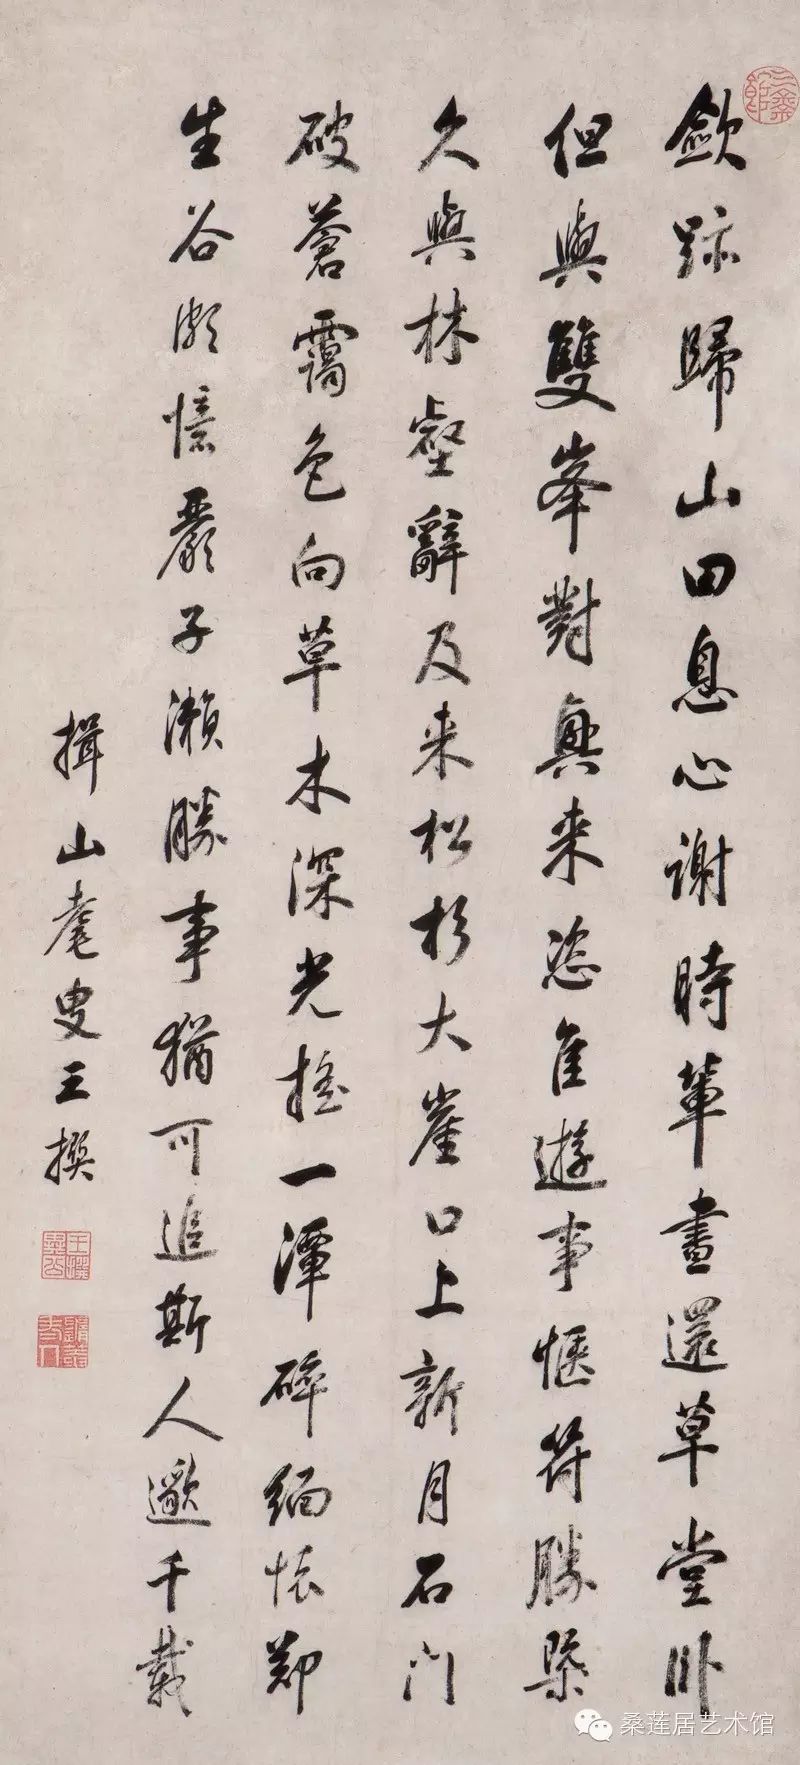 斂跡歸山田息心謝時輩晝還草堂卧
但與雙峯對興来恣佳遊事愜符勝槩
久與林壑辭及来松杉大崖口上新月石门
破蒼靄色向草木深光搖一潭碎緬懷鄭
生谷頗憶嚴子瀨勝事猶可追斯人邈千載
揖山耄叟王撰
桑莲居艺术馆